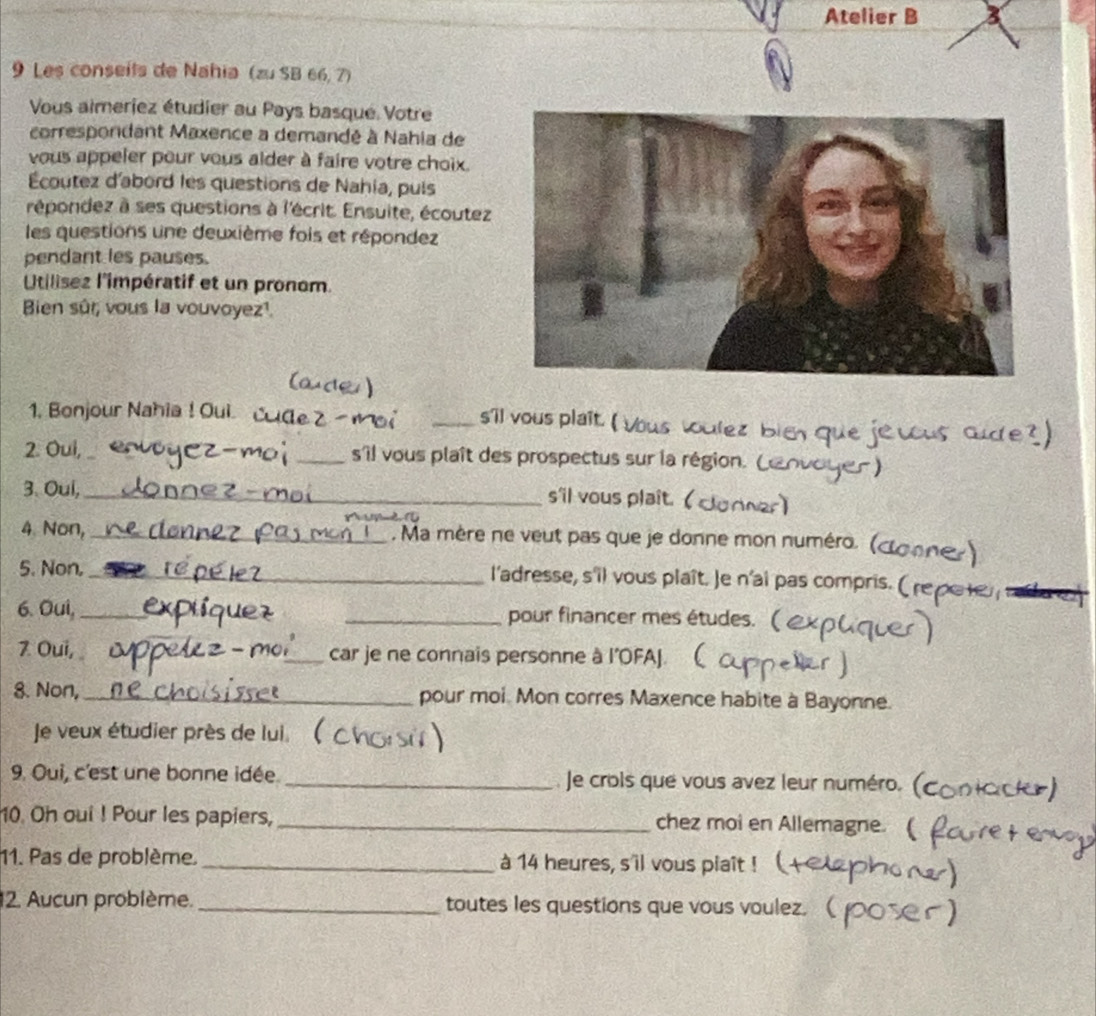 Atelier B 3
9 Les conseils de Nahia (zu SB 66, 7)
Vous aimeriez étudier au Pays basque. Votre
correspondant Maxence a demandé à Nahia de
vous appeler pour vous aider à faire votre choix.
Écoutez d'abord les questions de Nahia, puis
répondez à ses questions à l'écrit. Ensuite, écoutez
les questions une deuxième fois et répondez
pendant les pauses.
Utilisez l'impératif et un pronom.
Bien sûr, vous la vouvoyez¹.
(aider)
1. Bonjour Nahia ! Oui. aidez-moi ____ s'il vous plaît. (vous voulez bien que je vous aide?)
2. Oui, envoyez-moi ____ s'il vous plaît des prospectus sur la région. (envoyer)
3. Oui, donnez-moi ____ s'il vous plaît. (donner)
numéro
4. Non, ne donnez pas mon ! . Ma mère ne veut pas que je donne mon numéro. (donner)
5. Non, répétez ____ l'adresse, s'il vous plaît. Je n'ai pas compris. (repeter,
6. Oui, expliquez ____ pour financer mes études. (expliquer)
7. Oui, appelez-moi ____ car je ne connais personne à l'OFAJ. (appeller)
8. Non, ne choisisset ____ pour moi. Mon corres Maxence habite à Bayonne.
Je veux étudier près de lui. (choisir)
9. Oui, c'est une bonne idée. ____ . Je crois que vous avez leur numéro. (contacter)
10. Oh oui ! Pour les papiers, ____ chez moi en Allemagne. (faire + envoy
11. Pas de problème. ____ à 14 heures, s'il vous plaît ! (telephoner)
12. Aucun problème. ____ toutes les questions que vous voulez. (poser)